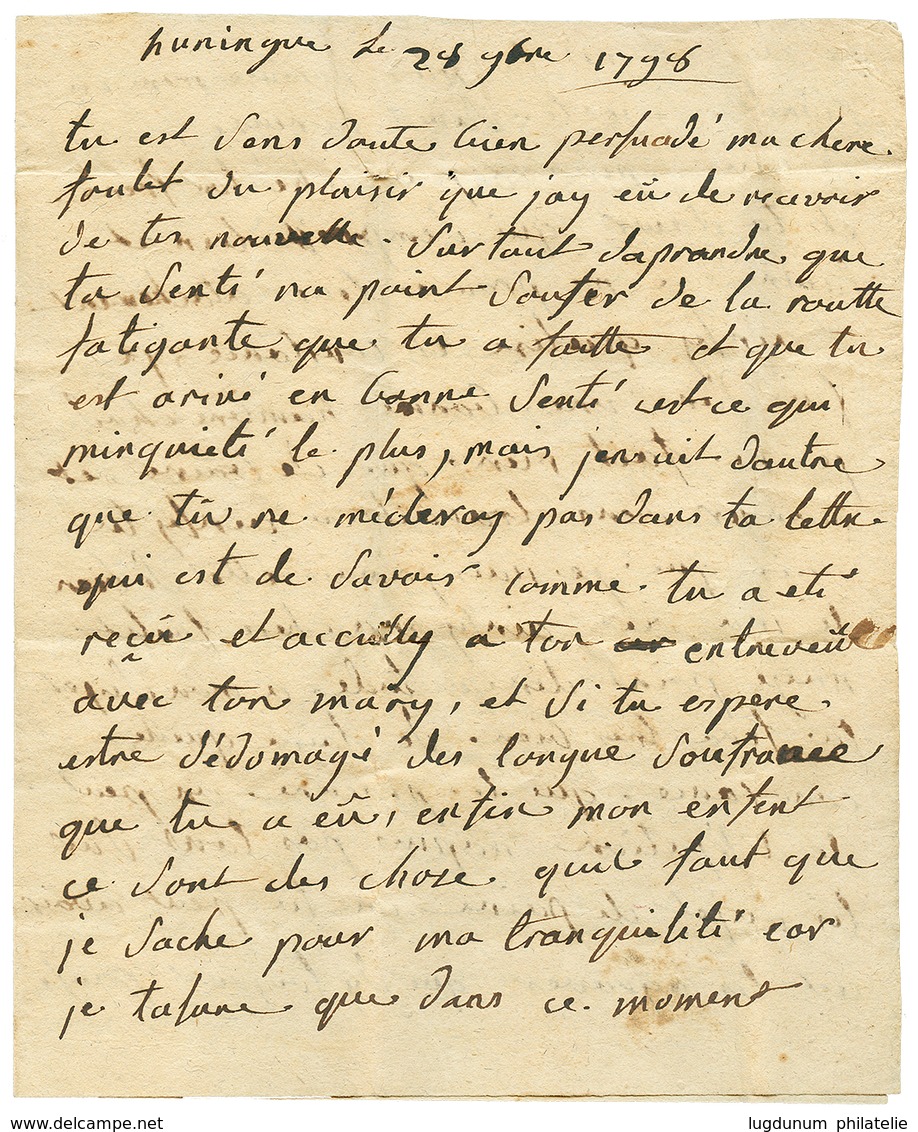 huningue le 28 9bre 1798
tu est sens doute bien persuadé ma chere
du plaisir que jay eü de recevoir
de tes nouvelle. surtout daprandre que
ta senti na point soufer de la routte
fatigante que tu a faitte et que tu
est arivé en bonne senté cest ce qui
minquieté le plus, mais jen ait dautre
que tu ne pas dans ta lettre
qui est de savoir comme tu a eté
reçüe et accuilly a ton entreveüe
avec ton mary, et si tu espere
estre dédomagé des longue soufrance
que tu a eü, enfin mon enfent
ce sont des chose quil faut que
je sache pour ma tranquilité car
je tasure que dans ce moment
lugdunum philatelie